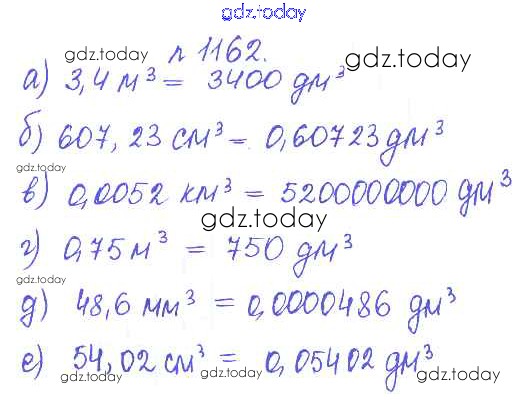 gdz.today
№ 1162.
gdz.today
gdz.today
а) 3,4 м³ = 3400 дм³
б) 607,23 см³ = 0,60723 дм³
gdz.today
в) 0,0052 км³ = 5200000000 дм³
gdz.today
г) 0,75 м³ = 750 дм³
gdz.today
д) 48,6 мм³ = 0,0000486 дм³
е) 54,02 см³ = 0,05402 дм³
gdz.today
gdz.today
gdz.today